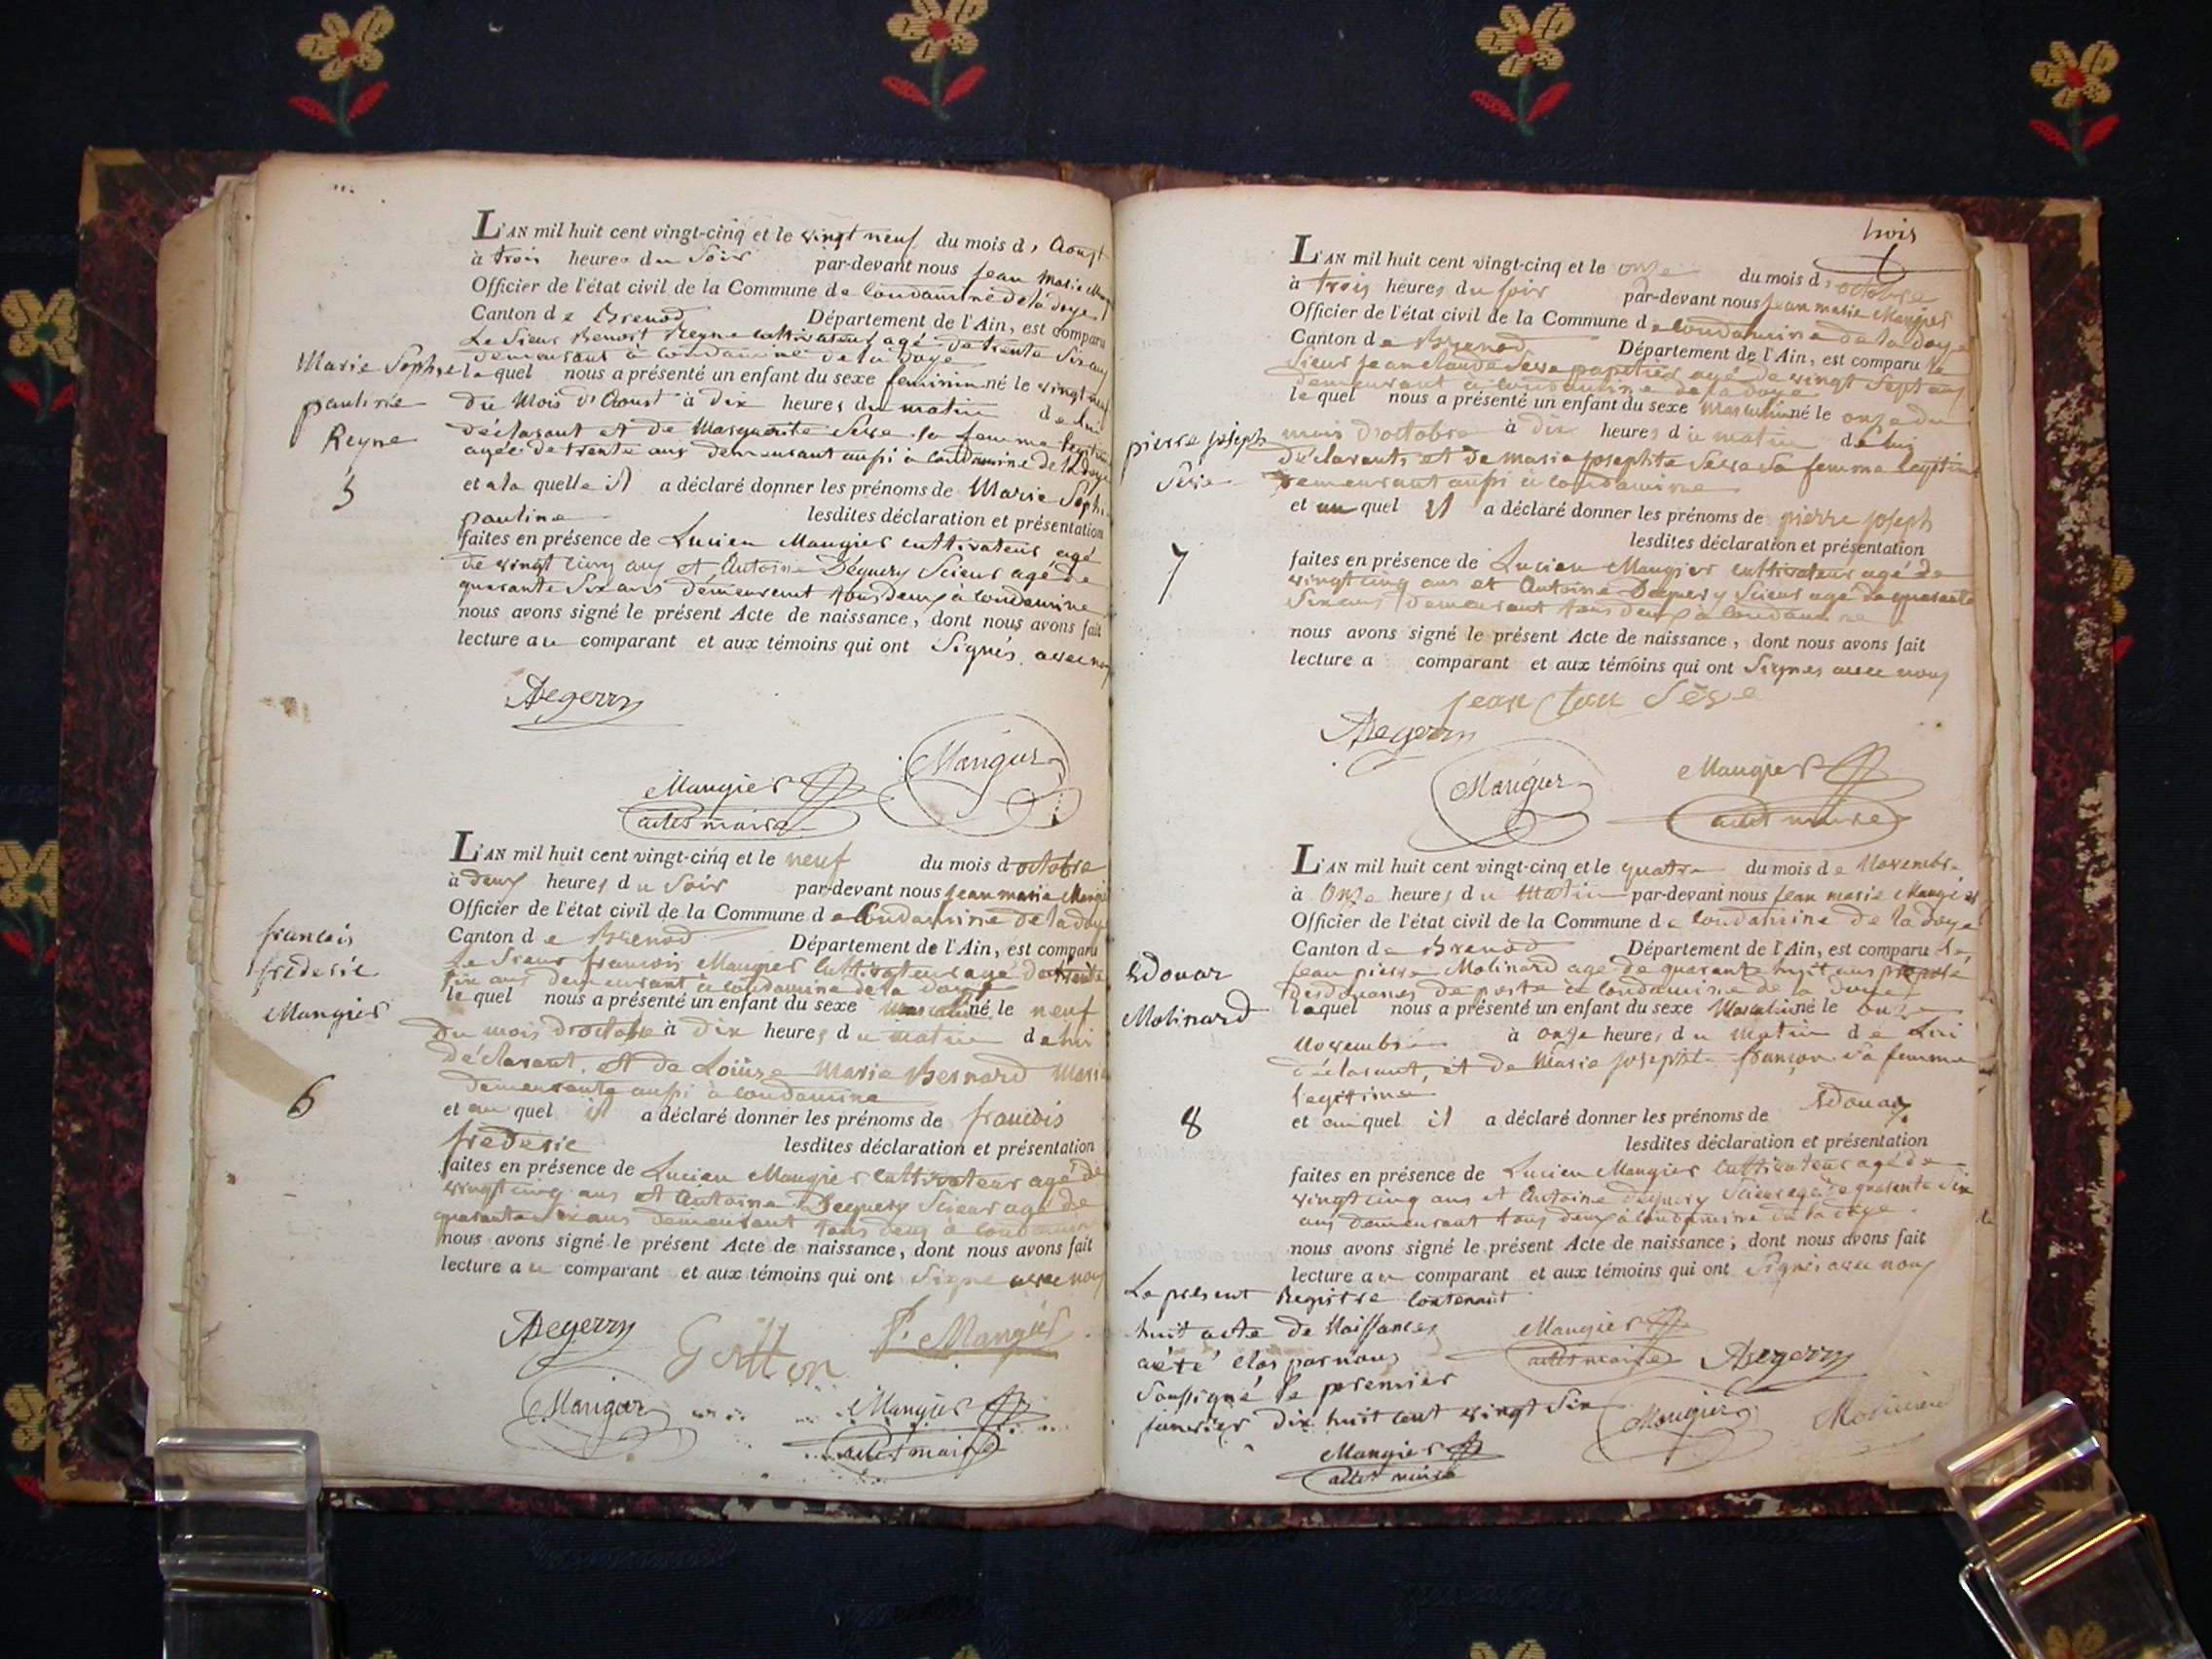 L'AN mil huit cent vingt-cinq et le vingt neuf du mois d'Aoust
à trois heures du Soir par-devant nous Jean Marie
Officier de l'état civil de la Commune de Condamine de la doye
Canton de Brenod Département de l'Ain, est comparu
Le Sieur Benoit Reyne cultivateur agé de trente Six ans
demeurant à Condamine de la doye
Marie Sophie
pauline
Reyne
5
lequel nous a présenté un enfant du sexe feminin né le vingt neuf
du Mois d'Aoust à dix heures du matin de lui
déclarant et de Marguerite Seve sa femme legitime
agée de trente ans demeurant aussi à Condamine de la doye
et a la quelle il a déclaré donner les prénoms de Marie Sophie
pauline lesdites déclaration et présentation
faites en présence de Lucien Maugier cultivateur agé
de vingt cinq ans et Antoine Deguery Scieur agé de
quarante Six ans demeurent tous deux à Condamine
nous avons signé le présent Acte de naissance, dont nous avons fait
lecture au comparant et aux témoins qui ont Signés avec nous
Maugier
Maugier
adet maire
L'AN mil huit cent vingt-cinq et le neuf du mois d octobre
à deux heures du Soir par-devant nous Jean marie Maugier
Officier de l'état civil de la Commune de Condamine de la doye
Canton de Brenod Département de l'Ain, est comparu
Le Sieur francois Maugier Cultivateur agé de trente
six ans demeurant à Condamine de la doye
francois
frederic
Maugier
6
le quel nous a présenté un enfant du sexe masculin né le neuf
du mois d'octobre à dix heures du matin de lui
déclarant, et de Loüise Marie Bernard
demeurante aussi à Condamine
et au quel il a déclaré donner les prénoms de francois
frederic lesdites déclaration et présentation
faites en présence de Lucien Maugier Cultivateur agé de
vingt cinq ans et Antoine Deguery Scieur agé de
quarante Six ans demeurant tous deux à Condamine
nous avons signé le présent Acte de naissance, dont nous avons fait
lecture au comparant et aux témoins qui ont Signé avec nous
F. Maugier
Maugier
Maugier
adet maire
trois
L'AN mil huit cent vingt-cinq et le onze du mois d'octobre
à trois heures du soir par-devant nous Jean marie Maugier
Officier de l'état civil de la Commune de Condamine de la doye
Canton de Brenod Département de l'Ain, est comparu le
Sieur Jean claude Seve papetier agé de vingt Sept ans
demeurant à Condamine de la doye
pierre joseph
Seve
7
le quel nous a présenté un enfant du sexe Masculin né le onze du
mois d'octobre à dix heures du matin de lui
déclarant, et de marie josephte Seve Sa femme legitime
demeurant aussi à Condamine
et au quel il a déclaré donner les prénoms de pierre joseph
lesdites déclaration et présentation
faites en présence de Lucien Maugier cultivateur agé de
vingt cinq ans et Antoine Deguery Scieur agé de quarante
Six ans demeurant tous deux à Condamine
nous avons signé le présent Acte de naissance, dont nous avons fait
lecture a comparant et aux témoins qui ont Signes avec nous
Jean Clau Séve
Maugier
Maugier
adet maire
L'AN mil huit cent vingt-cinq et le quatre du mois de Novembre
à Onze heures du Matin par-devant nous Jean marie Maugier
Officier de l'état civil de la Commune de Condamine de la doye
Canton de Brenod Département de l'Ain, est comparu le
Jean pierre Molinard agé de quarante huit ans préposé
des douanes de poste à Condamine de la doye
Edouar
Molinard
8
lequel nous a présenté un enfant du sexe Masculin né le
Novembre à onze heures du matin de Lui
déclarant, et de Marie josephte sa femme
legitime
et au quel il a déclaré donner les prénoms de Edouar
lesdites déclaration et présentation
faites en présence de Lucien Maugier Cultivateur agé de
vingt cinq ans et Antoine Deguery Scieur agé de quarente Six
ans demeurant tous deux à Condamine de la doye
nous avons signé le présent Acte de naissance, dont nous avons fait
lecture au comparant et aux témoins qui ont Signés avec nous
Le present Registre Contenant
huit acte de Naissances
a été clos par nous
Soussigné le premier
janvier dix huit cent vingt Six
Maugier
adet maire
Maugier
adet maire
Maugier